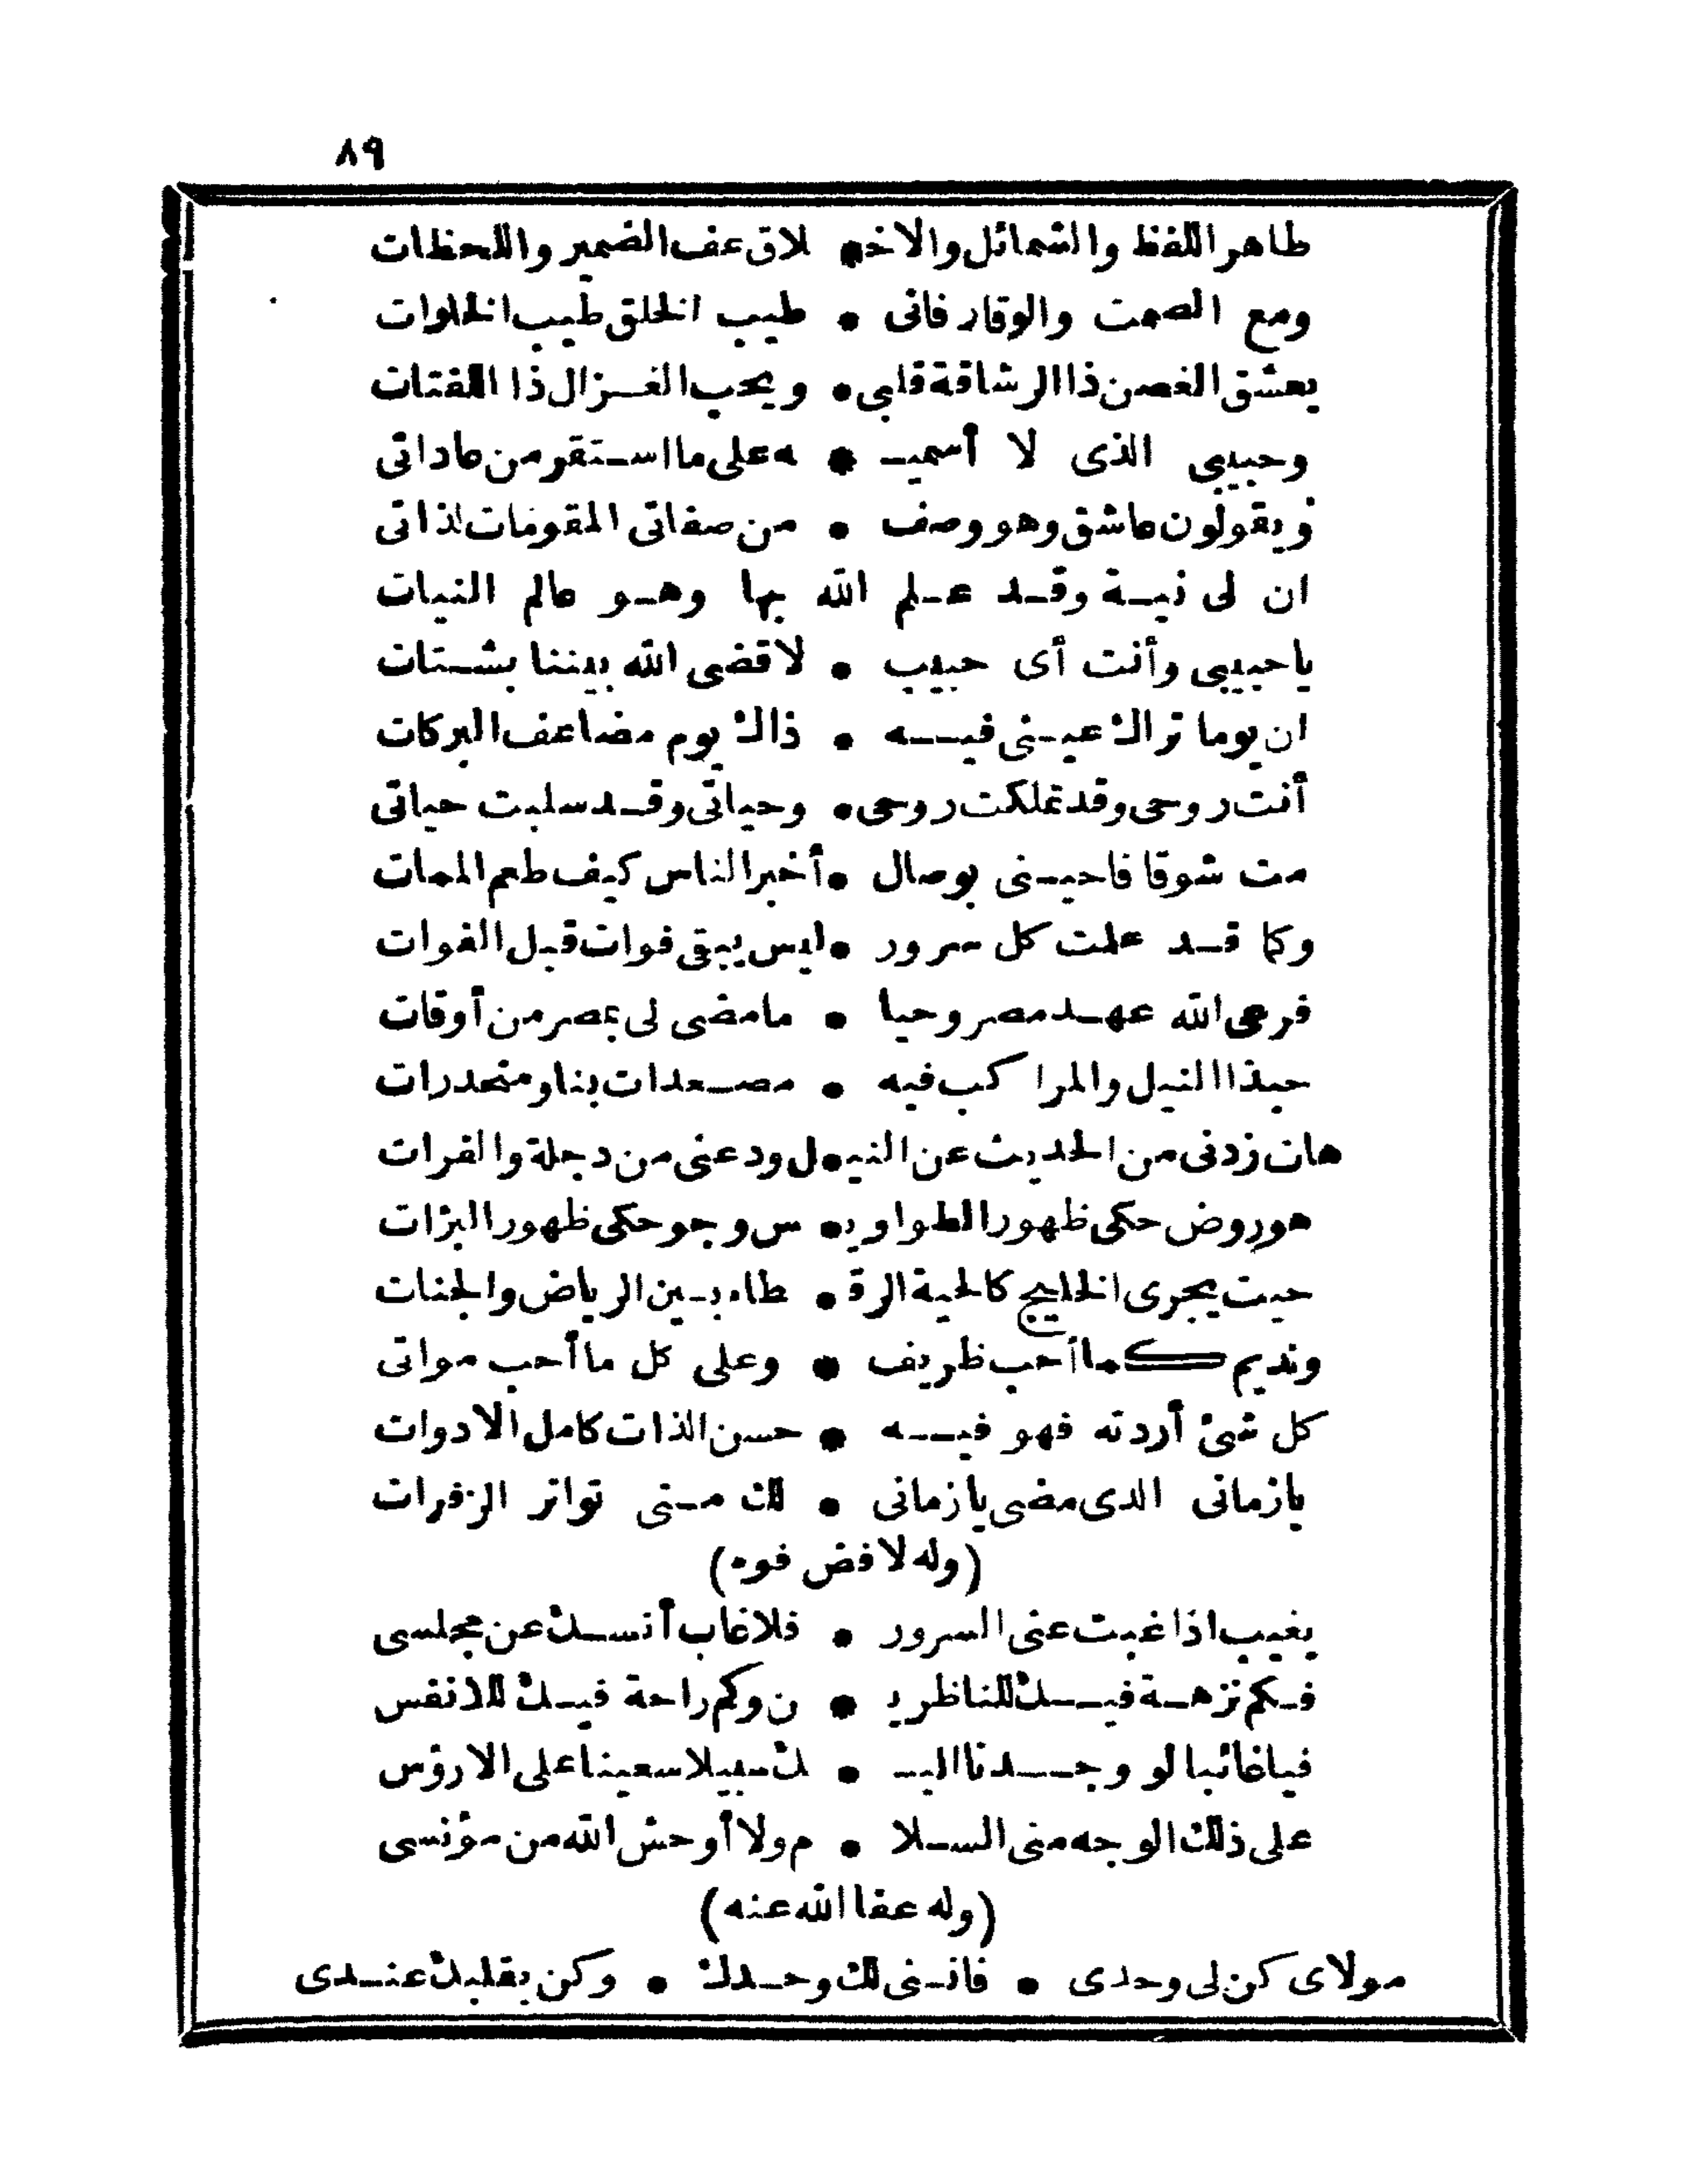 ٨٩
طاهر اللفظ والشمائل والاخـ • لاق عف الضمير واللحظات
ومع الصمت والوقار فانى • طيب الخلق طيب الخلوات
يعشق الغصن ذا الرشاقة قلبى • ويحب الغزال ذا اللفتات
وحبيبى الذى لا أسميـ • ه على ما استقر من عاداتى
ويقولون عاشق وهو وصف • من صفاتى المقومات لذاتى
ان لى نية وقد علم الله بها وهو عالم النيات
يا حبيبى وأنت أى حبيب • لا قضى الله بيننا بشتات
ان يوما تراك عينى فيه • ذاك يوم مضاعف البركات
أنت روحى وقد تملكت روحى • وحياتى وقد سلبت حياتى
مت شوقا فاحينى بوصال • أخبر الناس كيف طعم الممات
وكما قد علمت كل سرور • ليس يبقى فوات قبل الفوات
فرعى الله عهد مصر وحيا • ما مضى لى بمصر من أوقات
حبذا النيل والمراكب فيه • مصعدات بنا ومنحدرات
هات زدنى من الحديث عن النيـ • ل ودعنى من دجلة والفرات
هو روض حكى ظهور الطواويـ • س وجو حكى ظهور البزات
حيث يجرى الخليج كالحية الرقـ • طاء بين الرياض والجنات
ونديم كما أحب ظريف • وعلى كل ما أحب مواتى
كل شئ أردته فهو فيه • حسن الذات كامل الادوات
يا زمانى الدى مضى يا زمانى • لك منى تواتر الزفرات
(وله لا فض فوه)
يغيب اذا غبت عنى السرور • فلا غاب أنسك عن مجلسى
فكم نزهة فيك للناظريـ • ن وكم راحة فيك للانفس
فيا غائبا لو وجدنا اليـ • ك سبيلا سعينا على الارؤس
على ذلك الوجه منى السلا • م ولا أوحش الله من مؤنسى
(وله عفا الله عنه)
مولاى كن لى وحدى • فاننى لك وحدك • وكن بقلبك عندى